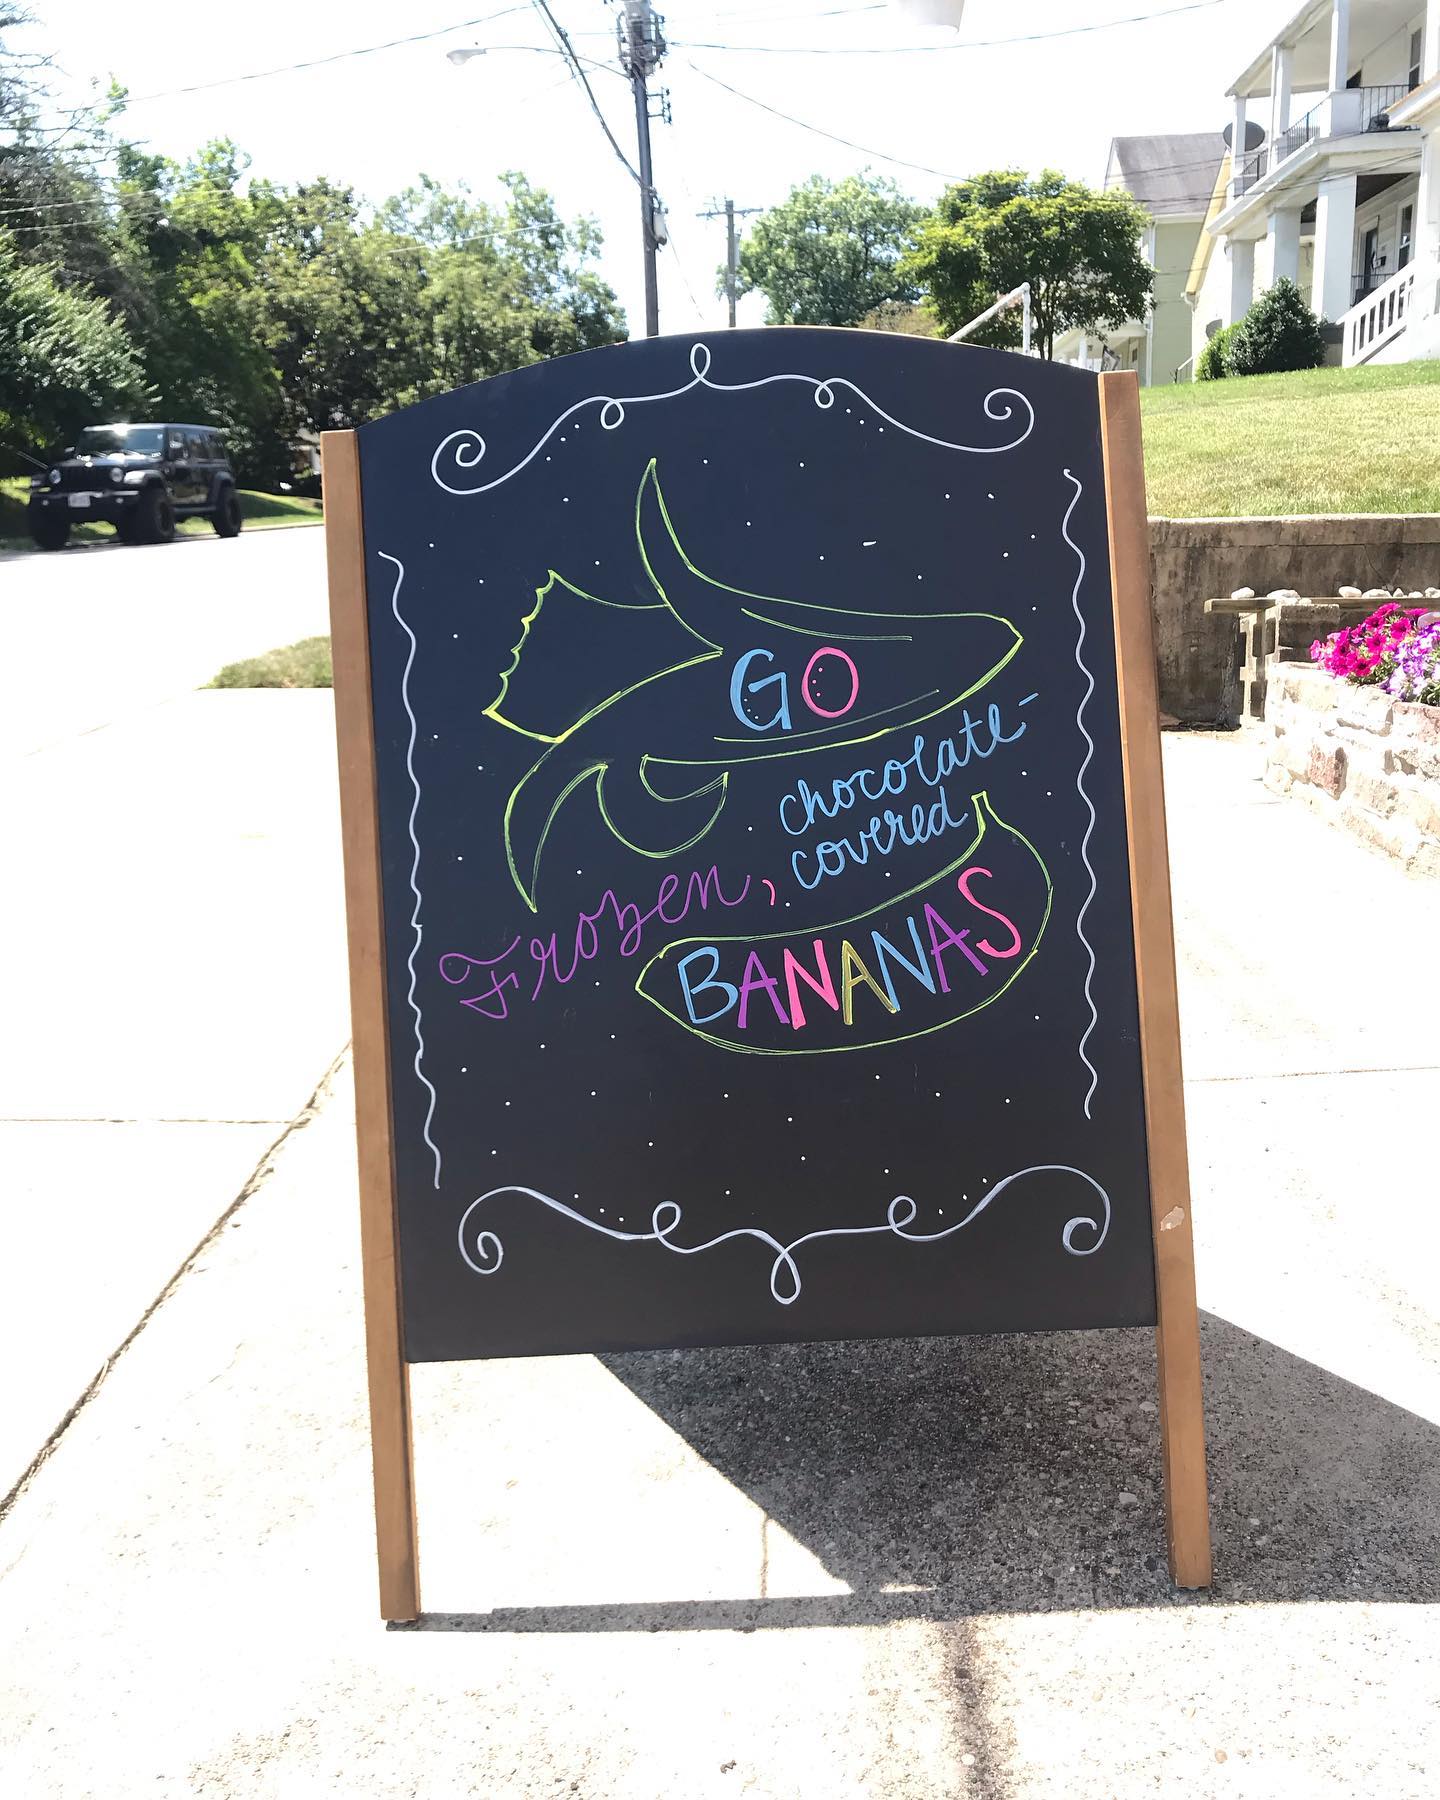 GO
chocolate-
covered
Frozen,
BANANAS